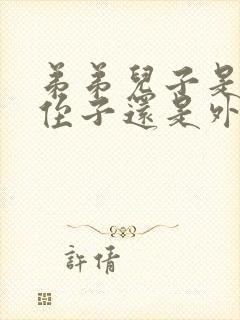 弟弟兒子是
侄子還是外
許倩